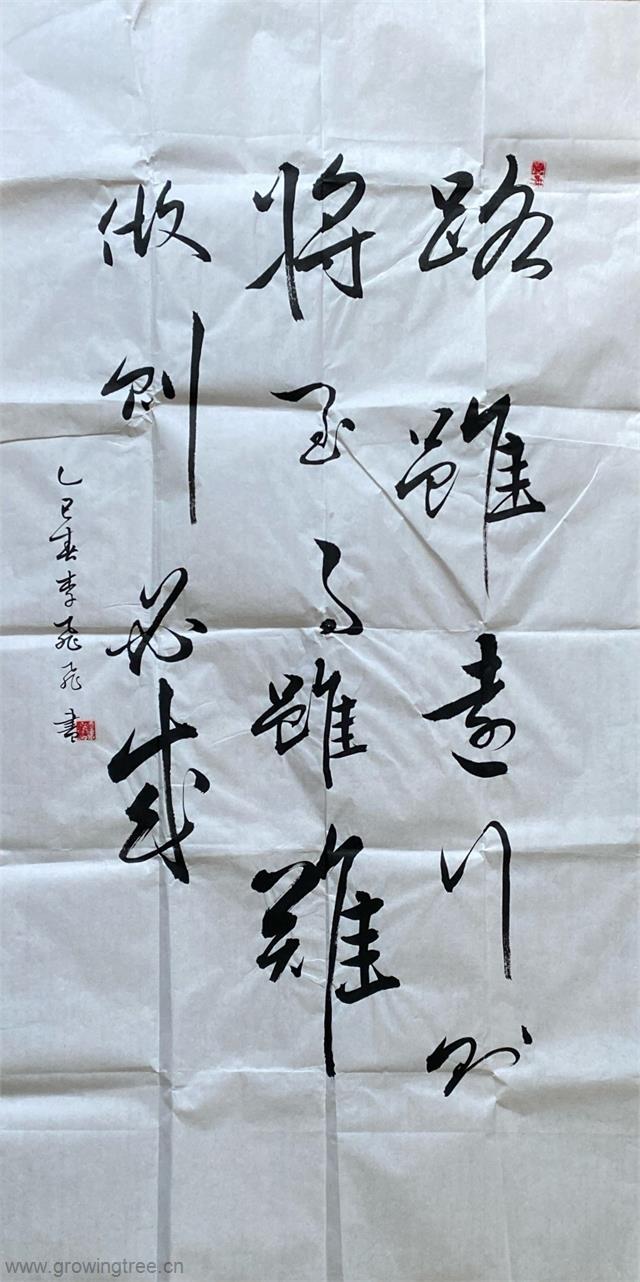 路雖遠行則
將至事雖難
做則必成
乙巳春李飛飛書
www.growingtree.cn